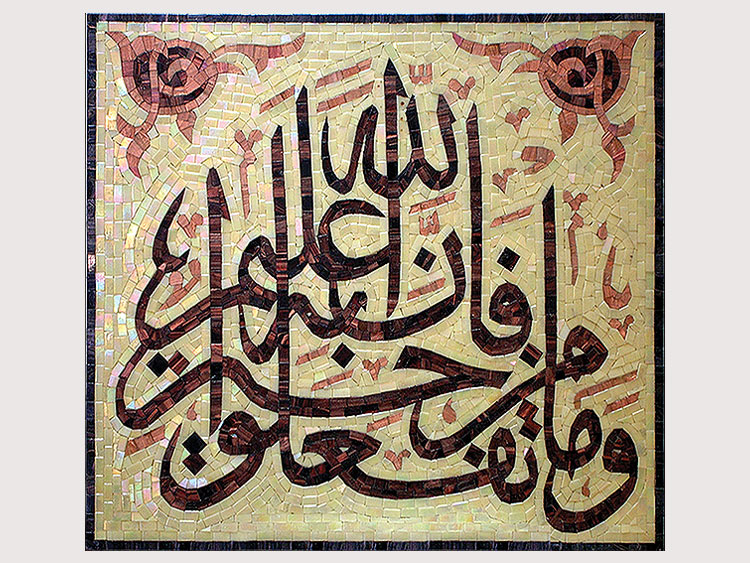 وما تفعلوا من خير فان الله به عليم